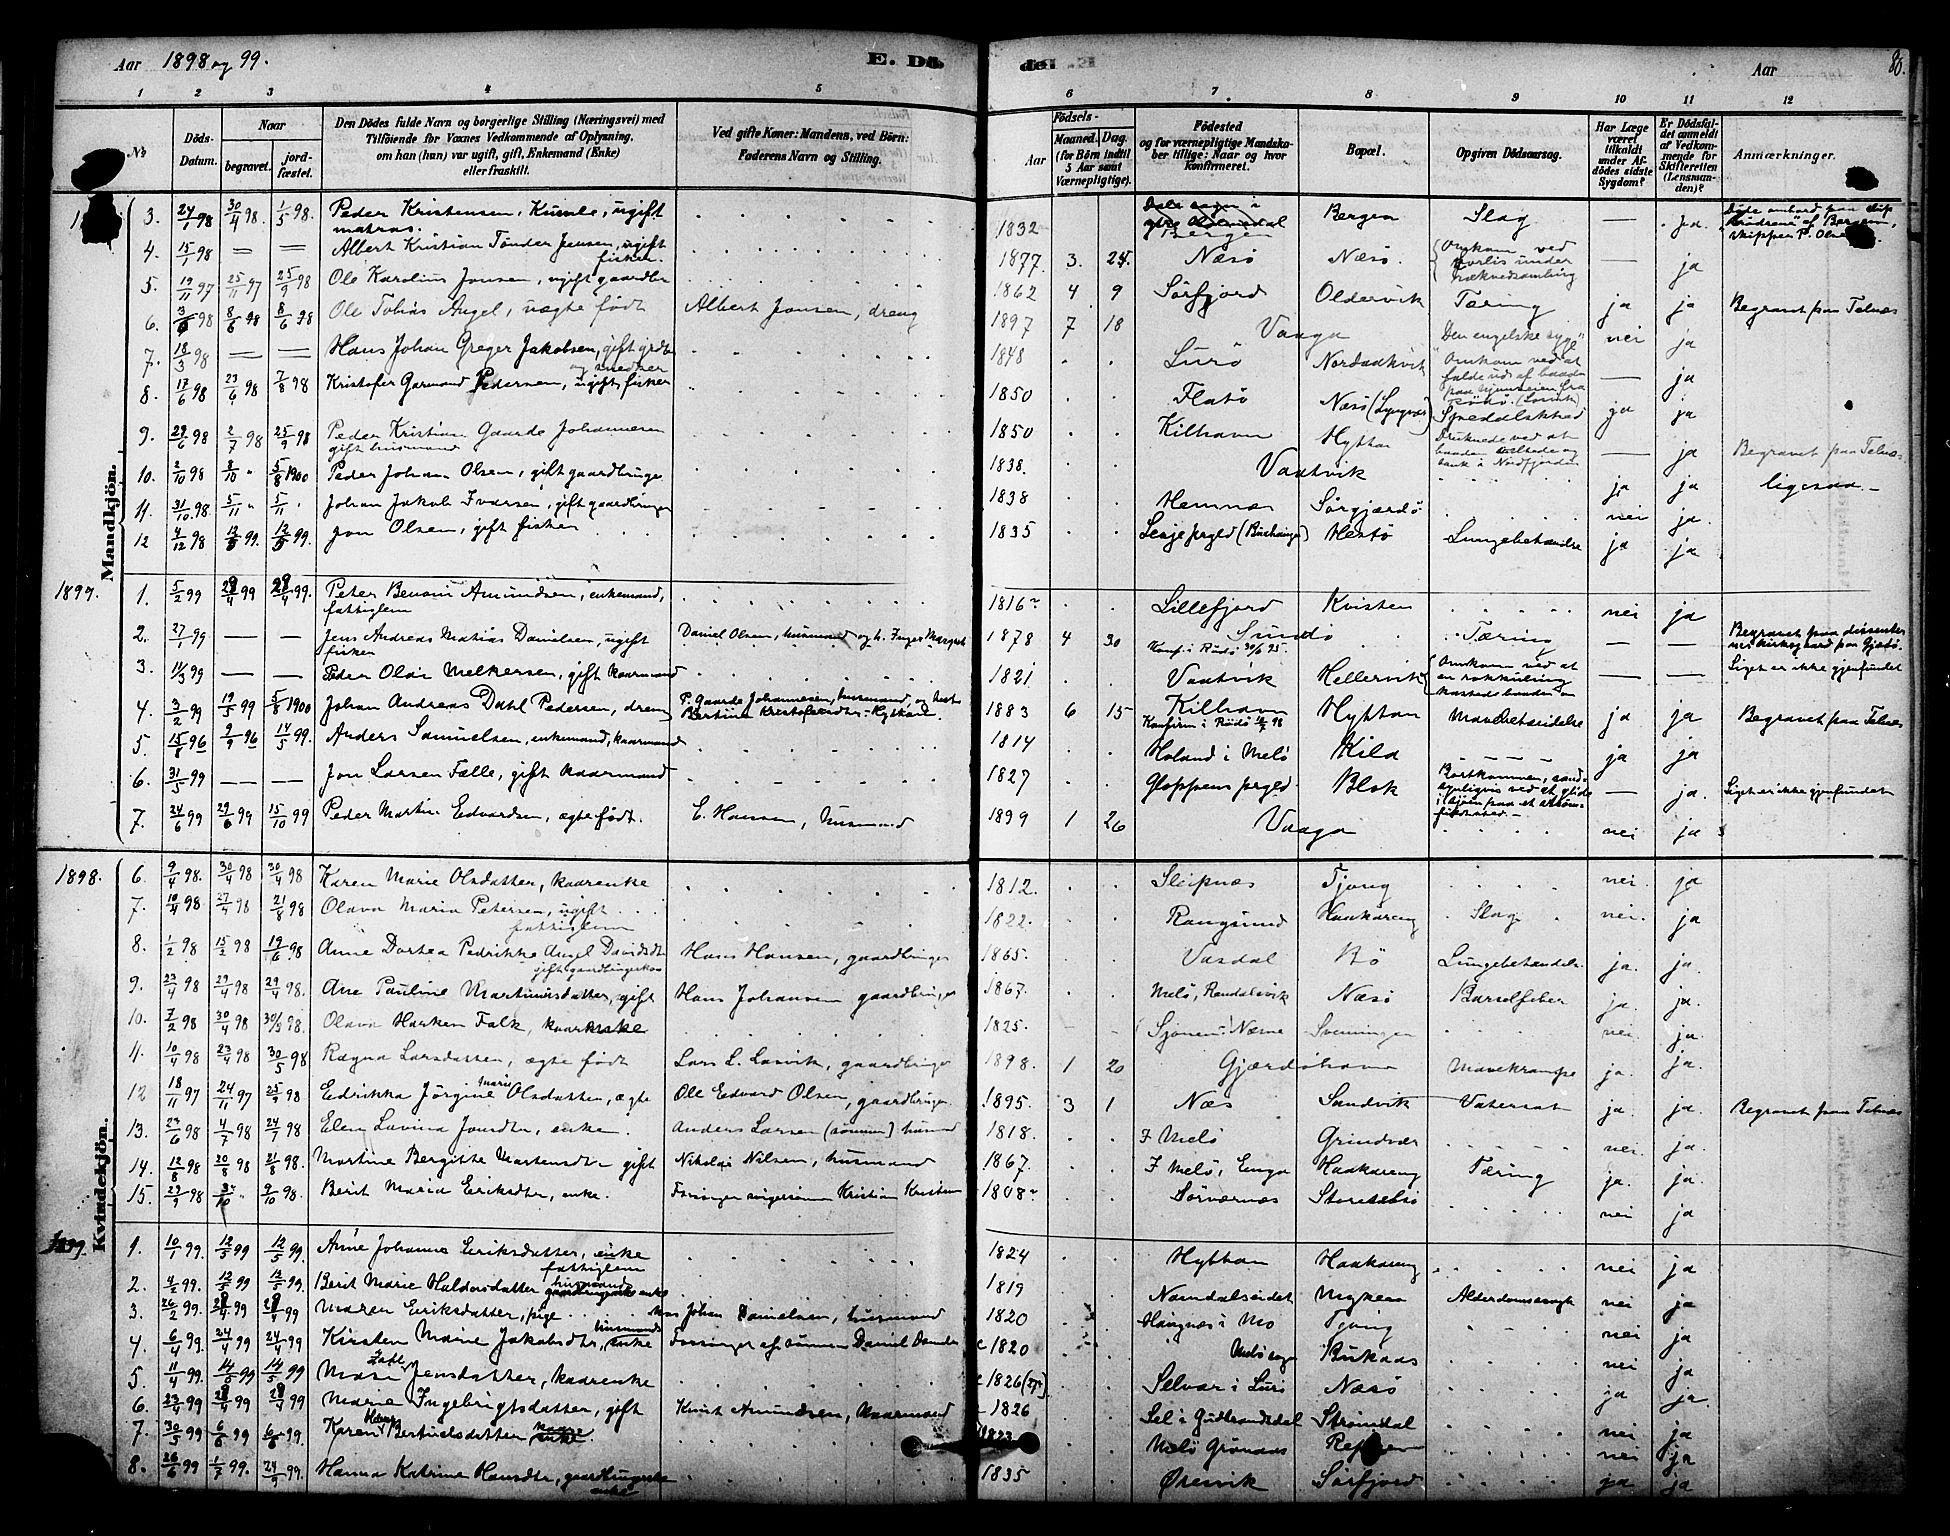 Aar 1898 og 99.
E. Dö
de
Aar
80.
1 2 3 4 5
6 7 8 9 10 11 12
№
Döds-
Datum.
Naar
begravet.
jord-
fæstet.
Den Dödes fulde Navn og borgerlige Stilling (Næringsvei) med
Tilföiende for Voxnes Vedkommende af Oplysning,
om han (hun) var ugift, gift, Enkemand (Enke)
eller fraskilt.
Ved gifte Koner: Mandens, ved Börn:
Faderens Navn og Stilling.
Födsels-
Aar
Maaned. Dag.
(for Börn indtil
5 Aar samt
Værnepligtige).
Födested
og for værnepligtige Mandska-
ber tillige: Naar og hvor
konfirmeret.
Bopæl.
Opgiven Dödsaarsag.
Har Læge
været
tilkaldt
under Af-
dödes sidste
Sygdom?
Er Dödsfal-
det anmeldt
af Vedkom-
mende for
Skifteretten
(Lensman-
den)?
Anmærkninger.
Mandkjön.
3. 24/1 98 30/4 98 1/5 98. Peder Kristensen, Kumle, ugift matros. 1832 Bergen Bergen Slag — ja
4. 15/1 98 = = Albert Kristian Tönder Jensen, ugift fisker. 1877. 3. 24. Næsö Næsö. Omkom ved forlis under — ja
5. 19/11 97 25/11 97 25/9 98 Ole Karolius Jonsen, ugift gaardbr 1862 4 9 Sörfjord Oldervik Tæring ja ja Begravet paa Telnæs
6. 98 8/6 98 8/6 98 Ole Tobias Angel, uægte födt Albert Jensen, dreng 1897 7 18 Vaaga Den engelske syge" nei ja
7. 18/3 98 = = Hans Johan Greger Jakobsen, gift grdbr og snedker 1848 Lurö Nordadkvik Omkom ved at falde ud af baaden — ja
8. 17/6 98 23/6 98 7/8 98 Kristofer Garmand Pedersen, ugift fisker 1850 Flatö Næsö (Lyngvær) Spedalskhed ja ja
9. 29/6 98 2/7 98 25/9 98 Peder Kristian Gaarde Johannesen gift husmand 1850 Kilhavn Hyttan Druknede ved at baaden væltede og sank i Nordfjorden — ja Begravet paa Telnæs
10. 2/10 98 8/10 " 5/8 1900 Peder Johan Olsen, gift gaardbruger 1838. Vaatvik ja ja ligesaa —
11. 31/10 98 5/11 " 5/11 " Johan Jakob Ivarsen, gift gaardbruger 1838 Hemnæs Sörgjærdö nei ja.
12 4/12 98 99. 99. Jon Olsen, gift fisker 1835 Lesje prgld Hestö Lungebetændelse ja ja
1899.
1. 5/2 99 99 99. Peter Benoni Amundsen, enkemand, fattiglem 1816 Lillefjord Kvisten nei ja
2. 27/1 99 — — Jens Andreas Matias Danielsen, ugift fisker Daniel Olsen, husmand og h. Inger Margret 1878 4 30 Sundö Konf. i Rödö 30/6 95. Tæring — — Begravet paa dissenter
3. 11/3 99 — — Peder Olai Melkersen, gift kaarmand 1821 Vaatvik Hellervik Omkom ved at en rokkuling kastede baaden — — — Liget er ikke gjenfundet
4. 3/2 99 19/5 99 5/8 1900 Johan Andreas Dahl Pedersen, dreng P. Gaarde Johannesen, husmand, og hust. Bertine Kristofersdtr - Hyttan. 1883 6 15 Kilhavn Konfirm. i Rödö 98 Hyttan Mavebetændelse ja ja Begravet paa Telnæs
5. 15/8 96 9/9 96 14/5 99. Anders Samuelsen, enkemand, kaarmand 1814 Holand i Melö Kila ja ja
6. 31/5 99 — — Jon Larsen Falle, gift kaarmand 1827 Gloppens prgld Blok Bortkommen, sand- synligvis ved at glide i sjöen — ja. Liget er ikke gjenfundet
7. 24/6 99 29/6 99 15/10 99 Peder Martin Edvardsen, ægte födt. E. Hansen, husmand 1899 1 26 Vaaga nei ja
Kvindekjön.
1898.
6. 9/4 98. 30/4 98 30/4 98 Karen Marie Olsdatter, kaarenke 1812. Sleipnæs Tjong nei. ja
7. 10/4 98 27/4 98 21/8 98 Olava Maria Petersen, ugift fattiglem 1822. Rangsund Haakaréng Slag nei. ja
8. 1/2 98 15/2 98 19/6 98 Anne Dortea Pedrikke Angel Davidsdtr gift gaardbrugerkone Hans Hansen, gaardbruger 1865. Vasdal Bö Lungebetændelse ja. ja.
9. 23/4 98 29/4 98 29/4 98. Ane Pauline Martinusdatter, gift Hans Johansen gaardbruger 1867. Melö, Rendalsvik Næsö Barselfeber ja. ja.
10. 7/2 98 30/4 98 30/9 98. Olava Harken Falk, kaarenke 1825. Sjonen i Næsne Svenningen nei. ja.
11. 10/4 98 23/4 98 30/5 98 Ragna Larsdatter, ægte födt Lars L. Lasvik, gaardbruger 1898. 1 20 Gjærdöhavn Mavekrampe ja. ja.
12 18/11 97 24/11 97 25/9 98 Edrikka Jörgine Marie Olsdatter, ægte Ole Edvard Olsen, gaardbruger 1895. 3 1 Næs Sandvik Vatersot ja. ja. Begravet paa Telnæs
13. 23/6 98 4/7 98 24/7 98 Elen Lovina Jonsdtr, enke. Anders Larsen (sönnen) husmd 1818. I Melö Grindvær nei. ja.
14. 12/8 98 20/8 98 21/8 98. Martine Bergitte Mortensdtr gift Nikolai Nilsen, husmand 1867. I Melö, Enga Haakaréng Tæring ja. ja.
15. 29/9 98 /10 " 9/10 98. Berit Maria Eriksdtr, enke. Forsörger svigersönnen Kristian Kristensen 1808 Sörværnæs Storeselsö nei ja
1899.
1. 10/1 99. 12/5 99 12/5 99. Anne Johanna Eriksdatter, enke fattiglem 1824 Hyttan Haakaréng nei ja
2. 4/2 99. 12/5 99 12/5 99. Berit Marie Haldorsdatter husmands enke 1819 Namdalseidet Myken Alderdomssvagh nei ja
3. 26/2 99. 99 99 Maren Eriksdatter, pige Johan Danielsen, husmand 1820 Haugnæs i Mo Tjong nei ja
4. 6/4 99 24/4 99 24/4 99 Kirsten Marie Jakobsdtr, husmands enke Forsörger af sönnen Daniel 1820 Melö sogn Bukaas nei ja
5. 11/4 99. 14/5 99 14/5 99 Jensdatter, kaarenke 1826 Selvær i Lurö Næsö ja ja.
6. 23/4 99 99 99 Marie Ingebrigtsdatter, gift Knut Amundsen, kaarmand 1826 Sel i Gudbrandsdal Strömdal nei ja
7. 30/5 99 6/8 99 6/8 99. Karen Bertuelsdatter 1823 Melö Grönaas nei ja
8. 26/6 99 1/7 99. 24/9 99. Hanna Katrine Hansdtr, gaardbrugerenke 1835 Öresvik Sörfjord ja ja